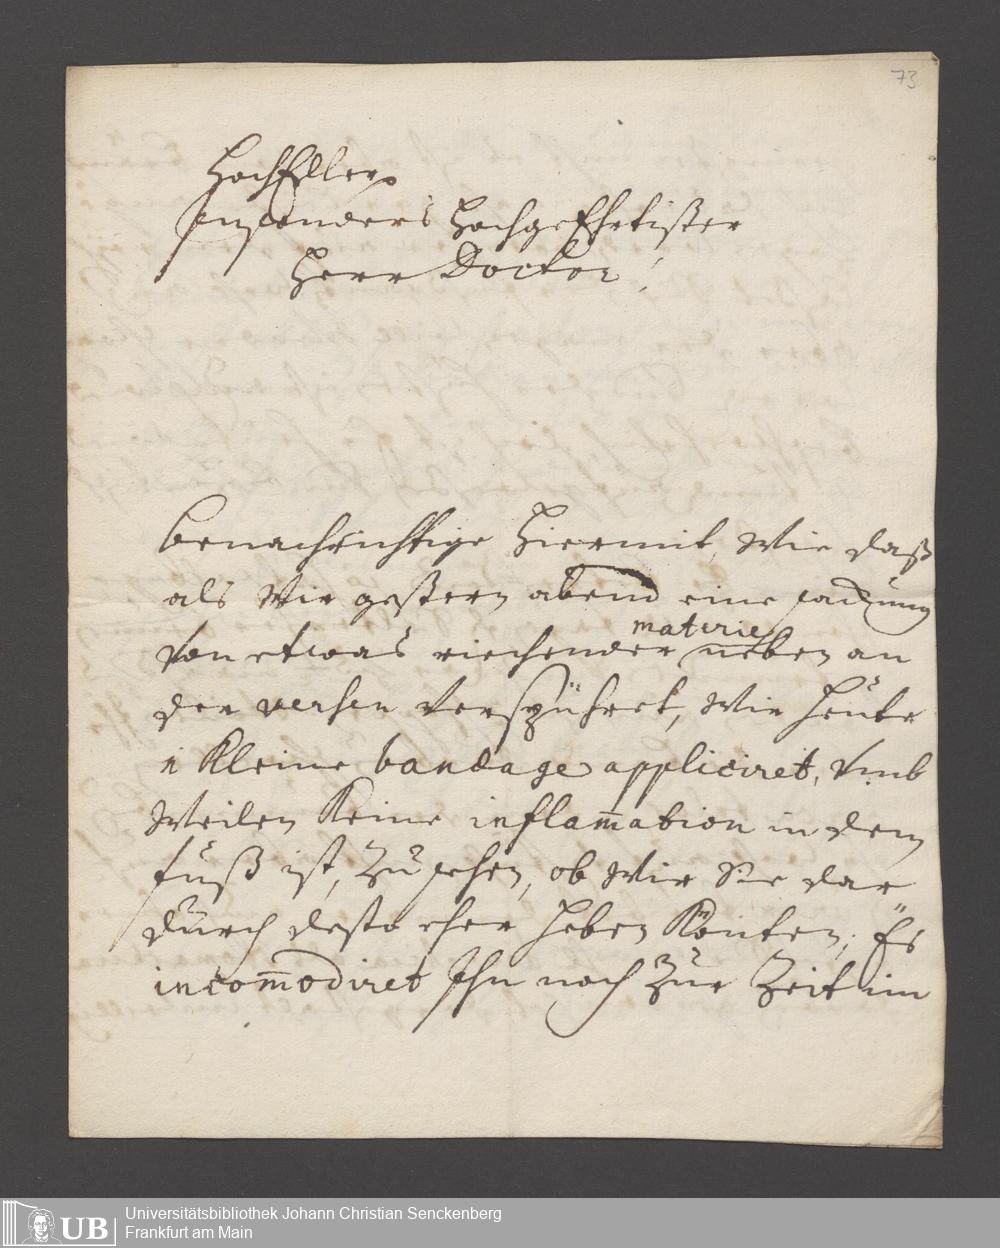 73
HochEdler
Insonders HochgeEhrtister
Herr Doctor!
benachrichtige hiermit, Wie daß
als Wir gestern abend eine
Von etwas riechender materie neben an
der versen Verspühret, Wir heute
n Kleine bandage appliciret, Vmb
Weilen Keine inflam̅ation in dem
fuß ist, Zu sehen, ob Wir Sie dar
durch desto eher heben Könten; Es
incom̅odiret Ihn noch Zur Zeit im
UB
Universitätsbibliothek Johann Christian Senckenberg
Frankfurt am Main